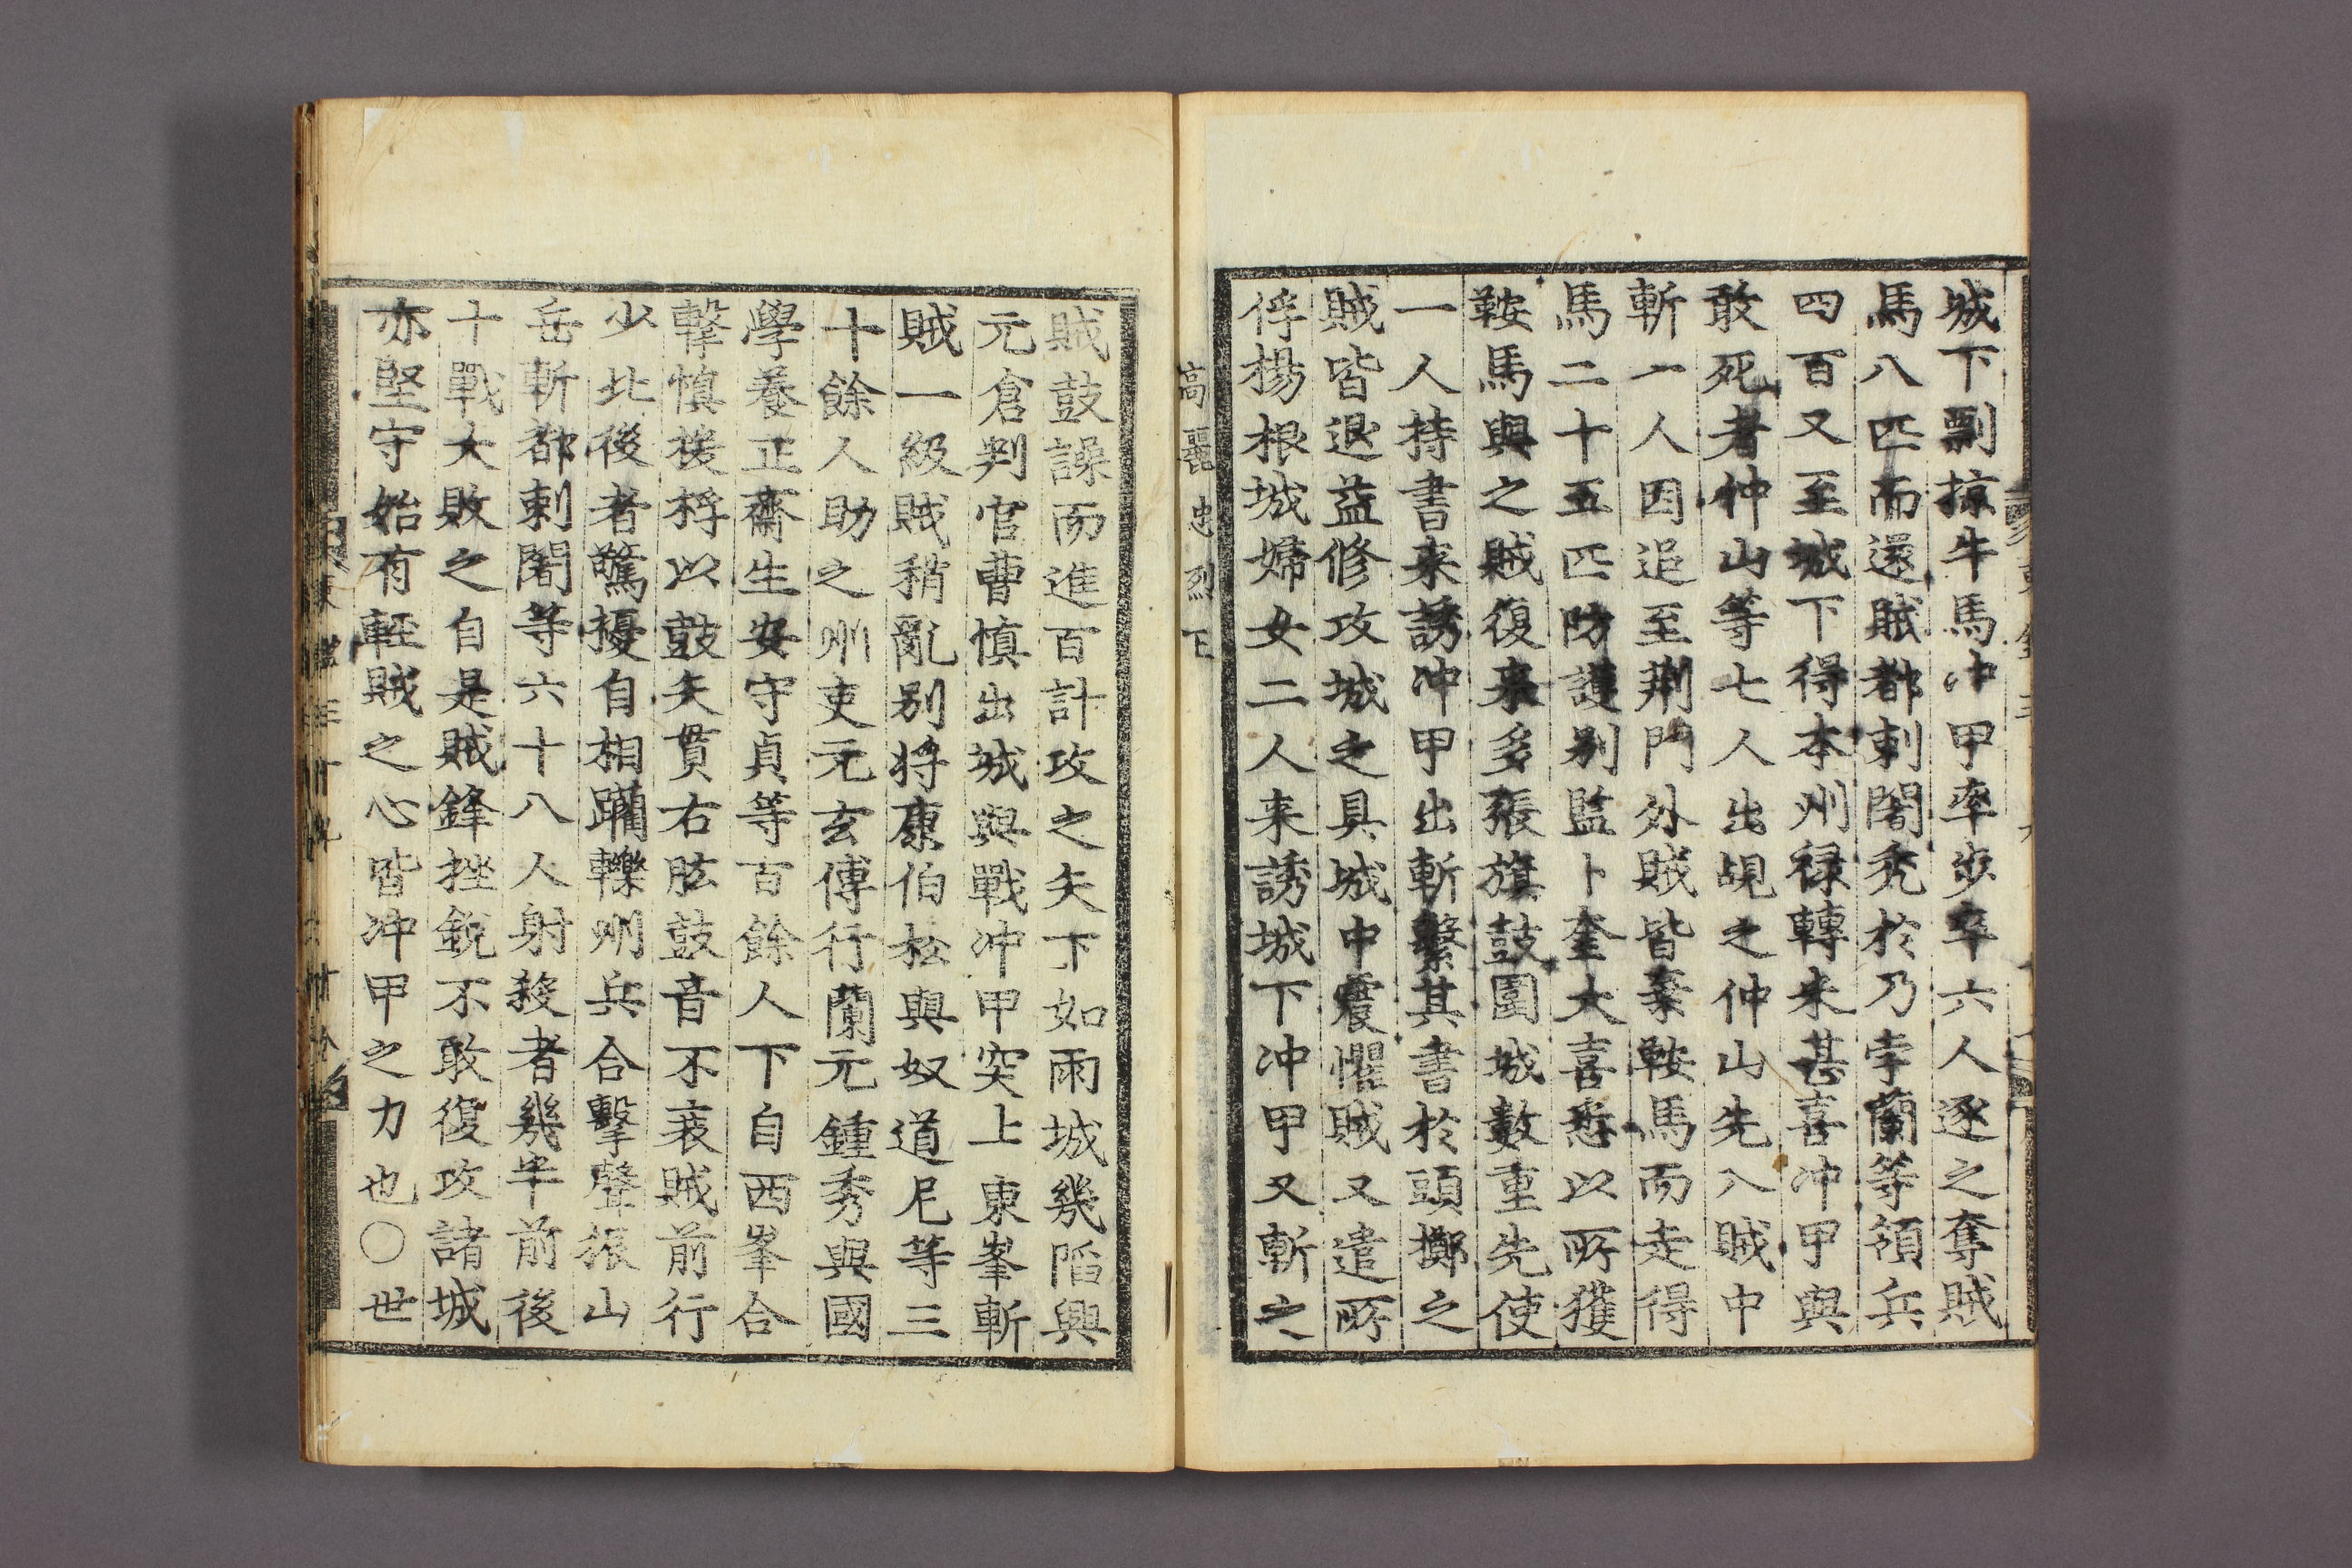 城下剽掠牛馬冲甲率步卒六人逐之奪賊
馬八匹而還賊都剌闍禿於乃孛蘭等領兵
四百又至城下得本州禄轉米甚喜冲甲與
敢死者仲山等七人出覘之仲山先入賊中
斬一人因追至荆門外賊皆棄鞍馬而走得
馬二十五匹防護别監卜奎大喜悉以所獲
鞍馬與之賊復来多張旗鼓圍城數重先使
一人持書来誘冲甲出斬繫其書於頭擲之
賊皆退益修攻城之具城中震懼賊又遣所
俘楊根城婦女二人来誘城下冲甲又斬之
高麗忠烈王
賊鼓譟而進百計攻之矢下如雨城幾陷興
元倉判官曹慎出城與戰冲甲突上東峯斬
賊一級賊稍亂别將康伯松與奴道尼等三
十餘人助之州吏元玄傅行蘭元鍾秀與國
學養正齋生安守貞等百餘人下自西峯合
擊慎援桴以鼓矢貫右肱鼓音不衰賊前行
少北後者驚擾自相躪轢州兵合擊聲振山
岳斬都剌闍等六十八人射殺者幾半前後
十戰大敗之自是賊鋒挫銳不敢復攻諸城
亦堅守始有輕賊之心皆冲甲之力也〇世